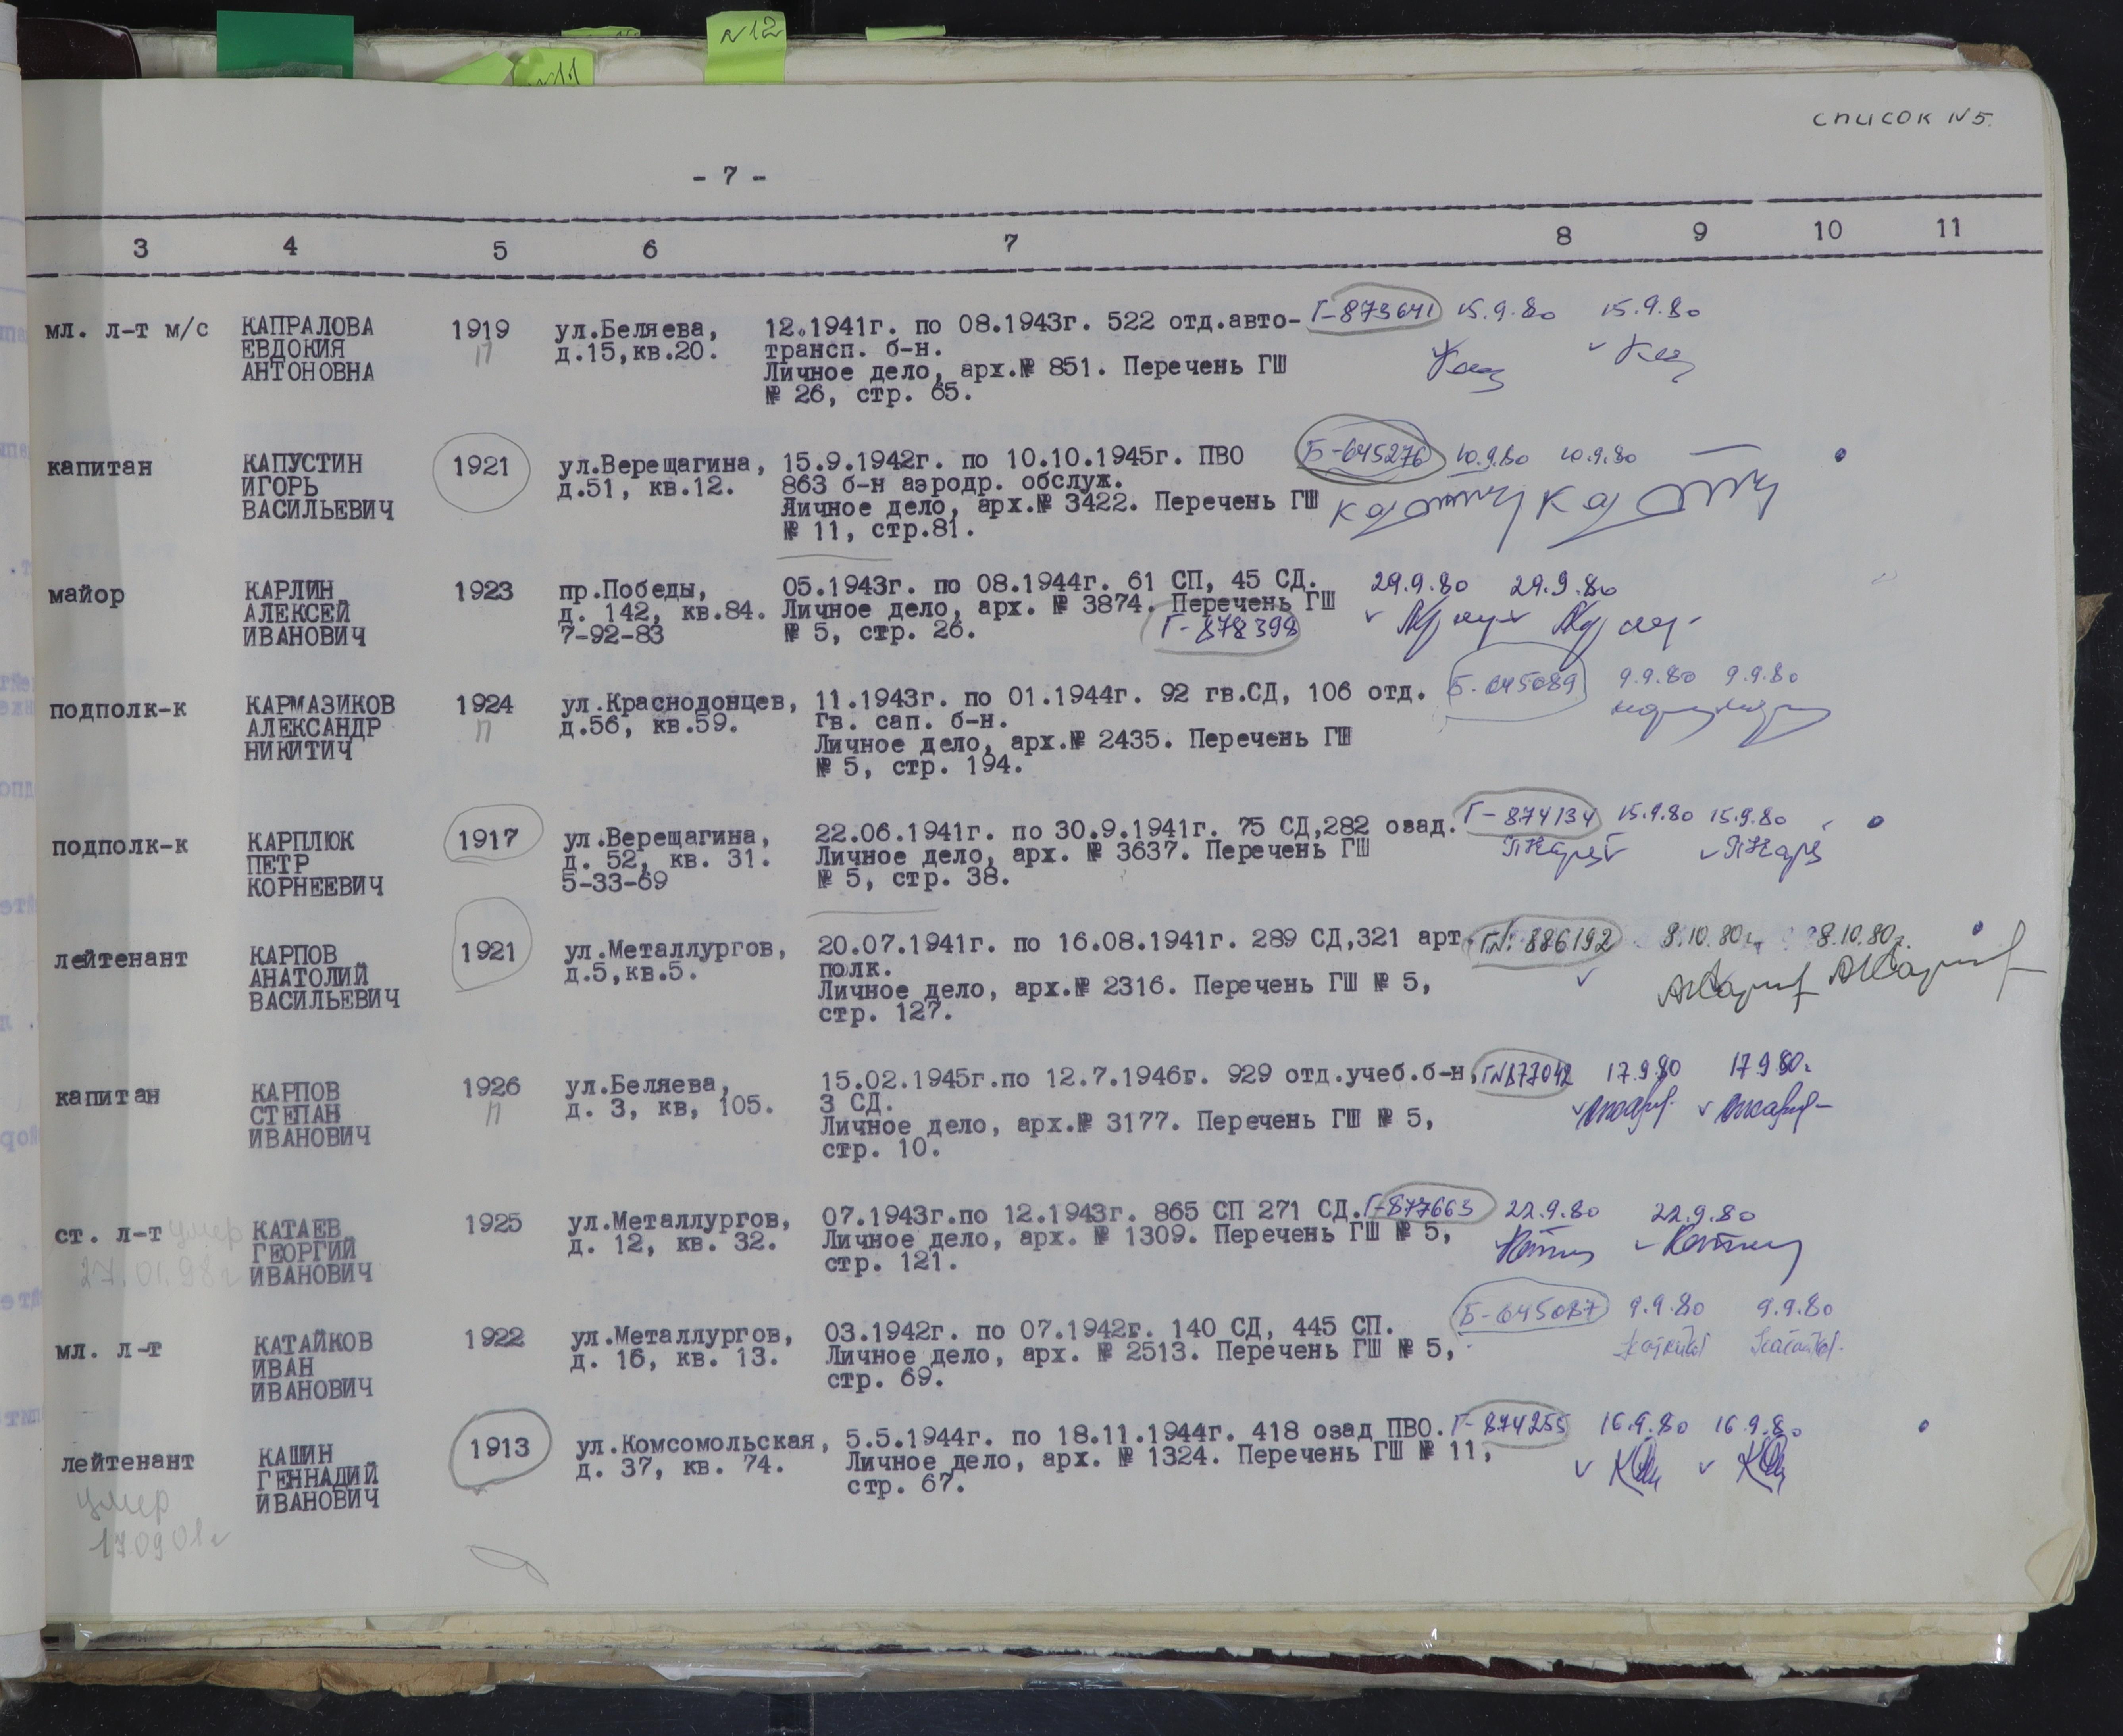 N12
список N5
- 7 -
3 4 5 6 7 8 9 10 11
мл. л-т м/с КАПРАЛОВА 1919 ул.Беляева, 12.1941г. по 08.1943г. 522 отд.авто- Г-873641 15.9.80 15.9.80
ЕВДОКИЯ П д.15,кв.20. трансп. б-н.
АНТОНОВНА Личное дело, арх.№ 851. Перечень ГШ
№ 26, стр. 65.
капитан КАПУСТИН 1921 ул.Верещагина, 15.9.1942г. по 10.10.1945г. ПВО Б-645276 10.9.80 10.9.80
ИГОРЬ д.51, кв.12. 863 б-н аэродр. обслуж.
ВАСИЛЬЕВИЧ Личное дело, арх.№ 3422. Перечень ГШ
№ 11, стр.81.
майор КАРЛИН 1923 пр.Победы, 05.1943г. по 08.1944г. 61 СП, 45 СД. 29.9.80 29.9.80
АЛЕКСЕЙ д. 142, кв.84. Личное дело, арх. № 3874. Перечень ГШ
ИВАНОВИЧ 7-92-83 № 5, стр. 26. Г-878398
подполк-к КАРМАЗИКОВ 1924 ул.Краснодонцев, 11.1943г. по 01.1944г. 92 гв.СД, 106 отд. Б-645089 9.9.80 9.9.80
АЛЕКСАНДР П д.56, кв.59. гв. сап. б-н.
НИКИТИЧ Личное дело, арх.№ 2435. Перечень ГШ
№ 5, стр. 194.
подполк-к КАРПЛЮК 1917 ул.Верещагина, 22.06.1941г. по 30.9.1941г. 75 СД,282 озад. Г-874134 15.9.80 15.9.80
ПЕТР д. 52, кв. 31. Личное дело, арх. № 3637. Перечень ГШ
КОРНЕЕВИЧ 5-33-69 № 5, стр. 38.
лейтенант КАРПОВ 1921 ул.Металлургов, 20.07.1941г. по 16.08.1941г. 289 СД,321 арт. ГN: 886192 8.10.80г. 8.10.80г.
АНАТОЛИЙ д.5,кв.5. полк.
ВАСИЛЬЕВИЧ Личное дело, арх.№ 2316. Перечень ГШ № 5,
стр. 127.
капитан КАРПОВ 1926 ул.Беляева, 15.02.1945г.по 12.7.1946г. 929 отд.учеб.б-н, ГN877042 17.9.80 17.9.80г
СТЕПАН П д. 3, кв, 105. 3 СД.
ИВАНОВИЧ Личное дело, арх.№ 3177. Перечень ГШ № 5,
стр. 10.
ст. л-т умер КАТАЕВ 1925 ул.Металлургов, 07.1943г.по 12.1943г. 865 СП 271 СД. Г-877663 22.9.80 22.9.80
27.01.98г ГЕОРГИЙ д. 12, кв. 32. Личное дело, арх. № 1309. Перечень ГШ № 5,
ИВАНОВИЧ стр. 121.
мл. л-т КАТАЙКОВ 1922 ул.Металлургов, 03.1942г. по 07.1942г. 140 СД, 445 СП. Б-645087 9.9.80 9.9.80
ИВАН д. 16, кв. 13. Личное дело, арх. № 2513. Перечень ГШ № 5,
ИВАНОВИЧ стр. 69.
лейтенант КАШИН 1913 ул.Комсомольская, 5.5.1944г. по 18.11.1944г. 418 озад ПВО. Г-874255 16.9.80 16.9.80
ГЕННАДИЙ д. 37, кв. 74. Личное дело, арх. № 1324. Перечень ГШ № 11,
ИВАНОВИЧ стр. 67.
умер
17.09.01г